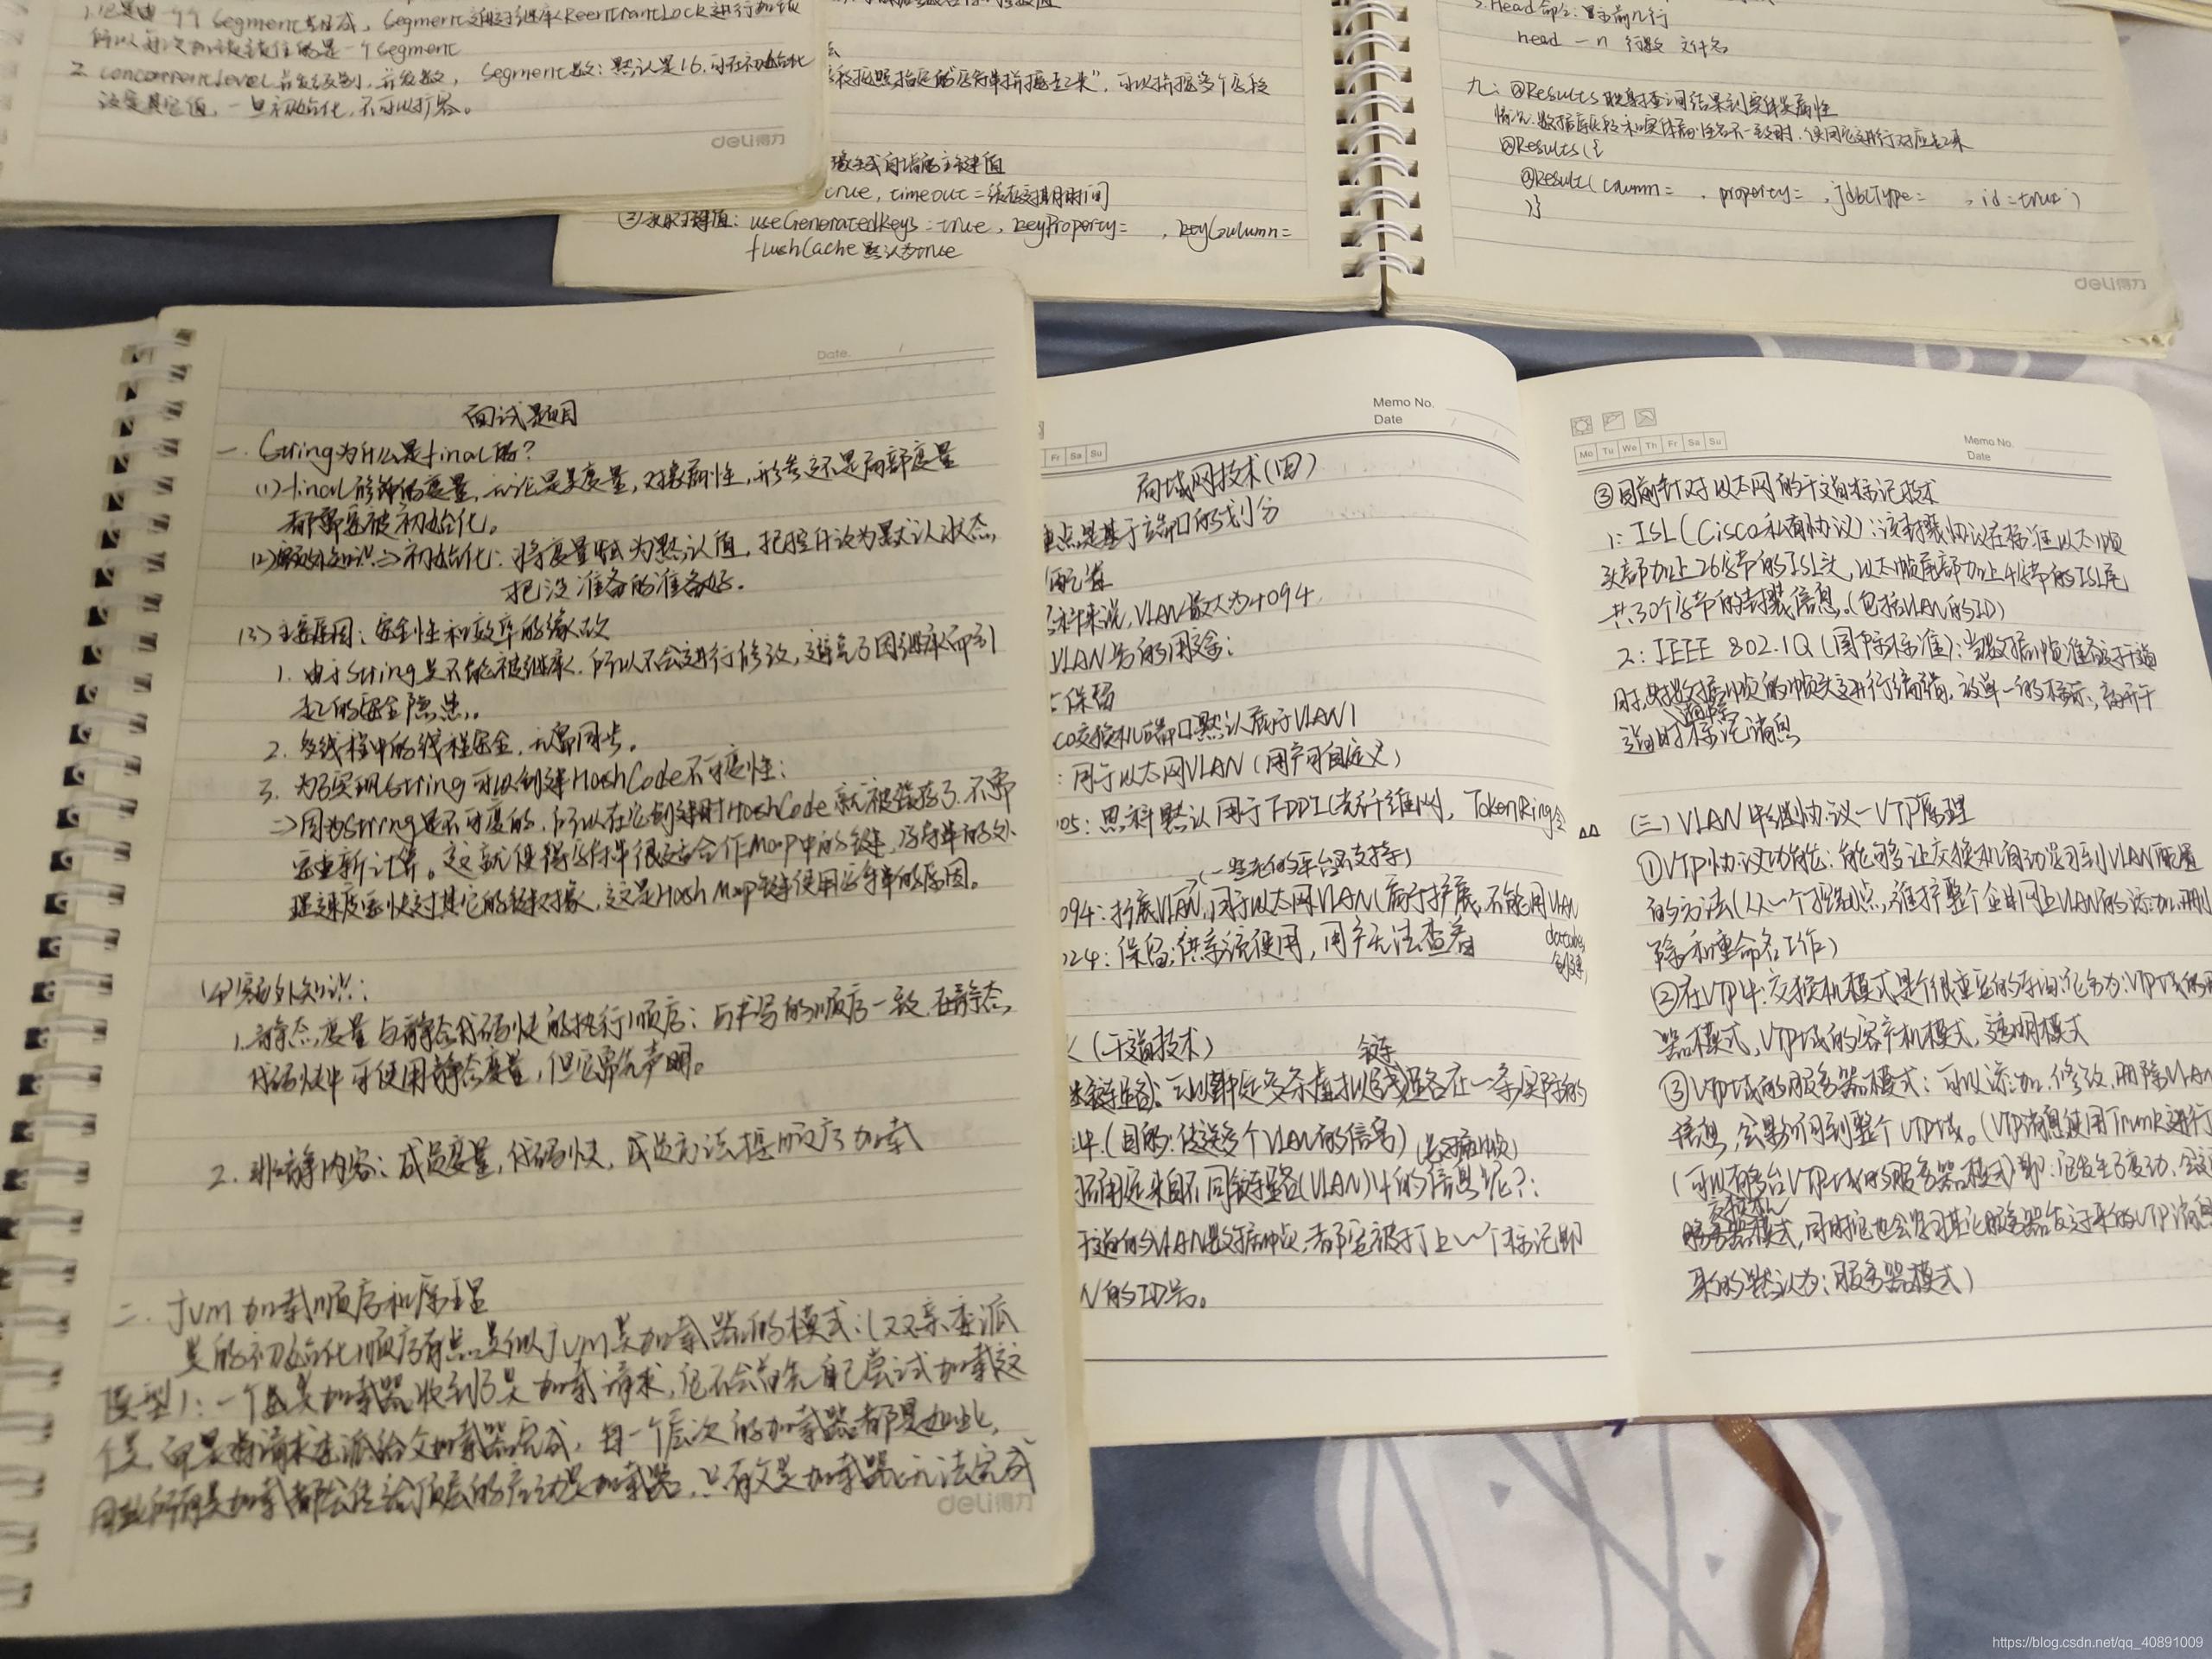 1.它是由一个个Segment组成，Segment通过继承ReentrantLock进行加锁
所以每次加锁锁住的是一个segment
2. concurrentLevel 并发级别,并发数， Segment数：默认是16,可在初始化
设置其它值，一旦初始化,不可以扩容。
deli得力
可以拼接多个字段
自增的主键值
true, timeout=
②获取主键值：useGeneratedKeys=true, keyProperty= , keyColumn=
flushCache默认为true
Head命令：显示前几行
head -n 行数 文件名
九：@Results映射查询结果到实体类属性
@Results({
@Result(column= , property= , jdbcType= , id=true)
)}
deli得力
Date. /
面试题目
一. String为什么是final的?
(1) final修饰的变量, 无论是类变量, 对象属性, 形参还是局部变量
都需要被初始化。
(2)额外知识=>初始化：将变量赋为默认值，把控件设为默认状态,
把没准备的准备好.
(3) 主要原因：安全性和效率的缘故
1. 由于String类不能被继承, 所以不会进行修改, 避免了因继承而引
起的安全隐患.
2. 多线程中的线程安全, 无需同步。
3. 为了实现String可以创建HashCode不可变性：
=>因为String是不可变的, 所以在它创建时HashCode就被缓存了, 不需
要重新计算。这就使得字符串很适合作Map中的键, 字符串的处
理速度要快过其它的键对象, 这是HashMap键使用字符串的原因。
(4)额外知识：
1.静态变量与静态代码块的执行顺序：与书写的顺序一致, 在静态
代码块中可使用静态变量, 但它需先声明。
2. 非静内容：成员变量, 代码块, 成员方法按顺序加载
二. Jvm加载顺序和原理
类的初始化顺序有点类似Jvm类加载器的模式：(双亲委派
模型)：一个类加载器收到了类加载请求, 它不会首先自己尝试加载这
个类, 而是将请求委派给父加载器完成, 每一个层次的加载器都是如此,
因此所有类加载都会传给顶层的启动类加载器, 只有父类加载器无法完成
deli得力
Memo No.
Date
Fr Sa Su
局域网技术(四)
重点是基于端口的划分
配置
来说, VLAN最大为4094
VLAN号的用途：
保留
CO交换机端口默认属于VLAN1
：用于以太网VLAN (用户可自定义)
05：思科默认用于FDDI(光纤维网), TokenRing
(一些老的平台不支持)
094：扩展VLAN, 用于以太网VLAN(属于扩展, 不能用VLAN
database
创建)
024：保留; 供系统使用, 用户无法查看
(干道技术)
链
链路：可以翻过多条虚拟线路在一条实际的
上. (目的：传送多个VLAN的信号)
用区来自不同链路(VLAN)中的信息呢?：
干道的VLAN数据帧, 都会被打上一个标记即
N的ID号。
Mo Tu We Th Fr Sa Su
Memo No.
Date
③目前针对以太网的干道标记技术
1：ISL (Cisco私有协议)：该封装协议在标准以太帧
头部加上26字节的ISL头, 以太帧尾部加上4字节的ISL尾
共30个字节的封装信息。(包括VLAN的ID)
2：IEEE 802.1Q (国际标准)：当数据帧准备送干道
时, 对数据帧的帧头进行编辑, 放单一的标示, 离开干
道时消除标记消息
(三) VLAN中继协议-VTP原理
①VTP协议功能：能够让交换机自动学习到VLAN配置
的方法(从一个控制点, 维护整个企业网上VLAN的添加, 删
除和重命名工作)
②在VTP中, 交换机模式是个很重要的
器模式, VTP域的客户机模式, 透明模式
③VTP域的服务器模式：可以添加, 修改, 删除VLAN
信息, 会影响到整个VTP域。(VTP消息使用Trunk进行
(可以有多台VTP域的服务器模式)即：它发生了变动,
交换机
服务器模式, 同时它也会学习其它服务器发过来的VTP消息
来的默认为：服务器模式)
https://blog.csdn.net/qq_40891009